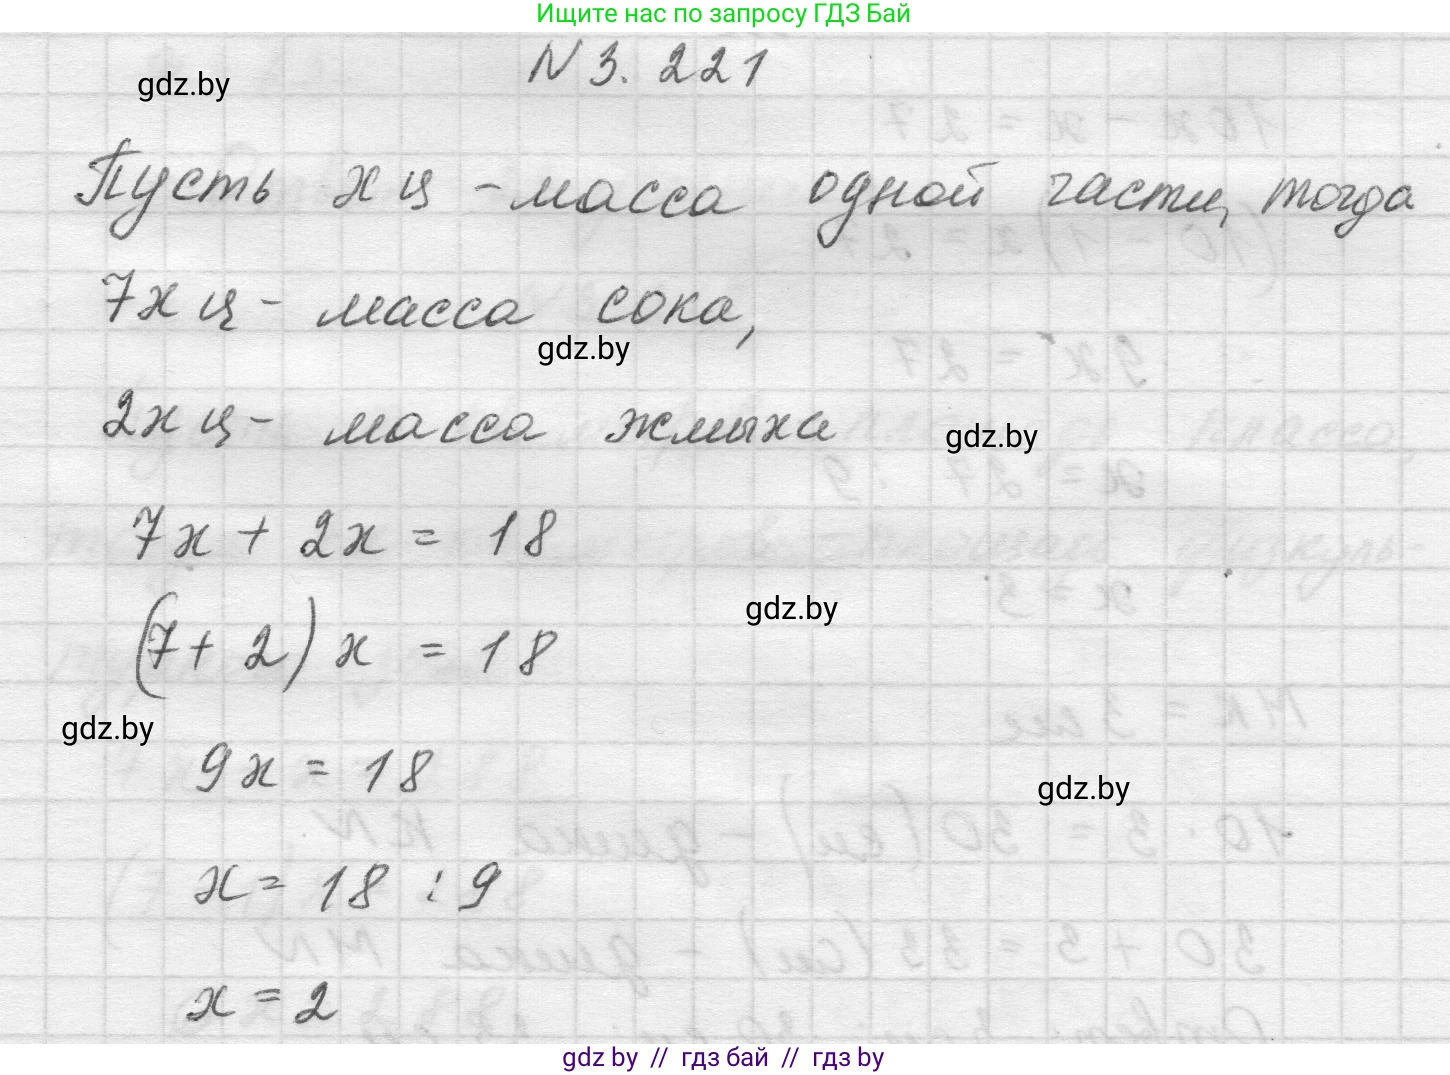 Ищите нас по запросу ГДЗ Бай
N 3. 221
gdz.by
Пусть х ц - масса одной части, тогда
7х ц - масса сока,
gdz.by
2х ц - масса жмыха
gdz.by
7х + 2х = 18
gdz.by
(7 + 2) х = 18
gdz.by
9х = 18
gdz.by
х = 18 : 9
х = 2
gdz by // гдз бай // гдз by